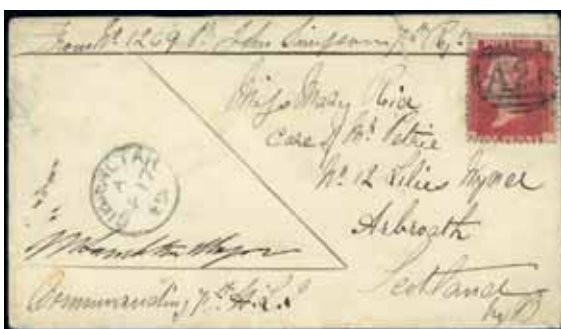 From No 1269 Pt John Simpson 7
A26
Miss Mary Rice
Care of Mr Petrie
No 12 Lilies Wynd
Arbroath
Scotland
GIBRALTAR
Commanding H.L.I